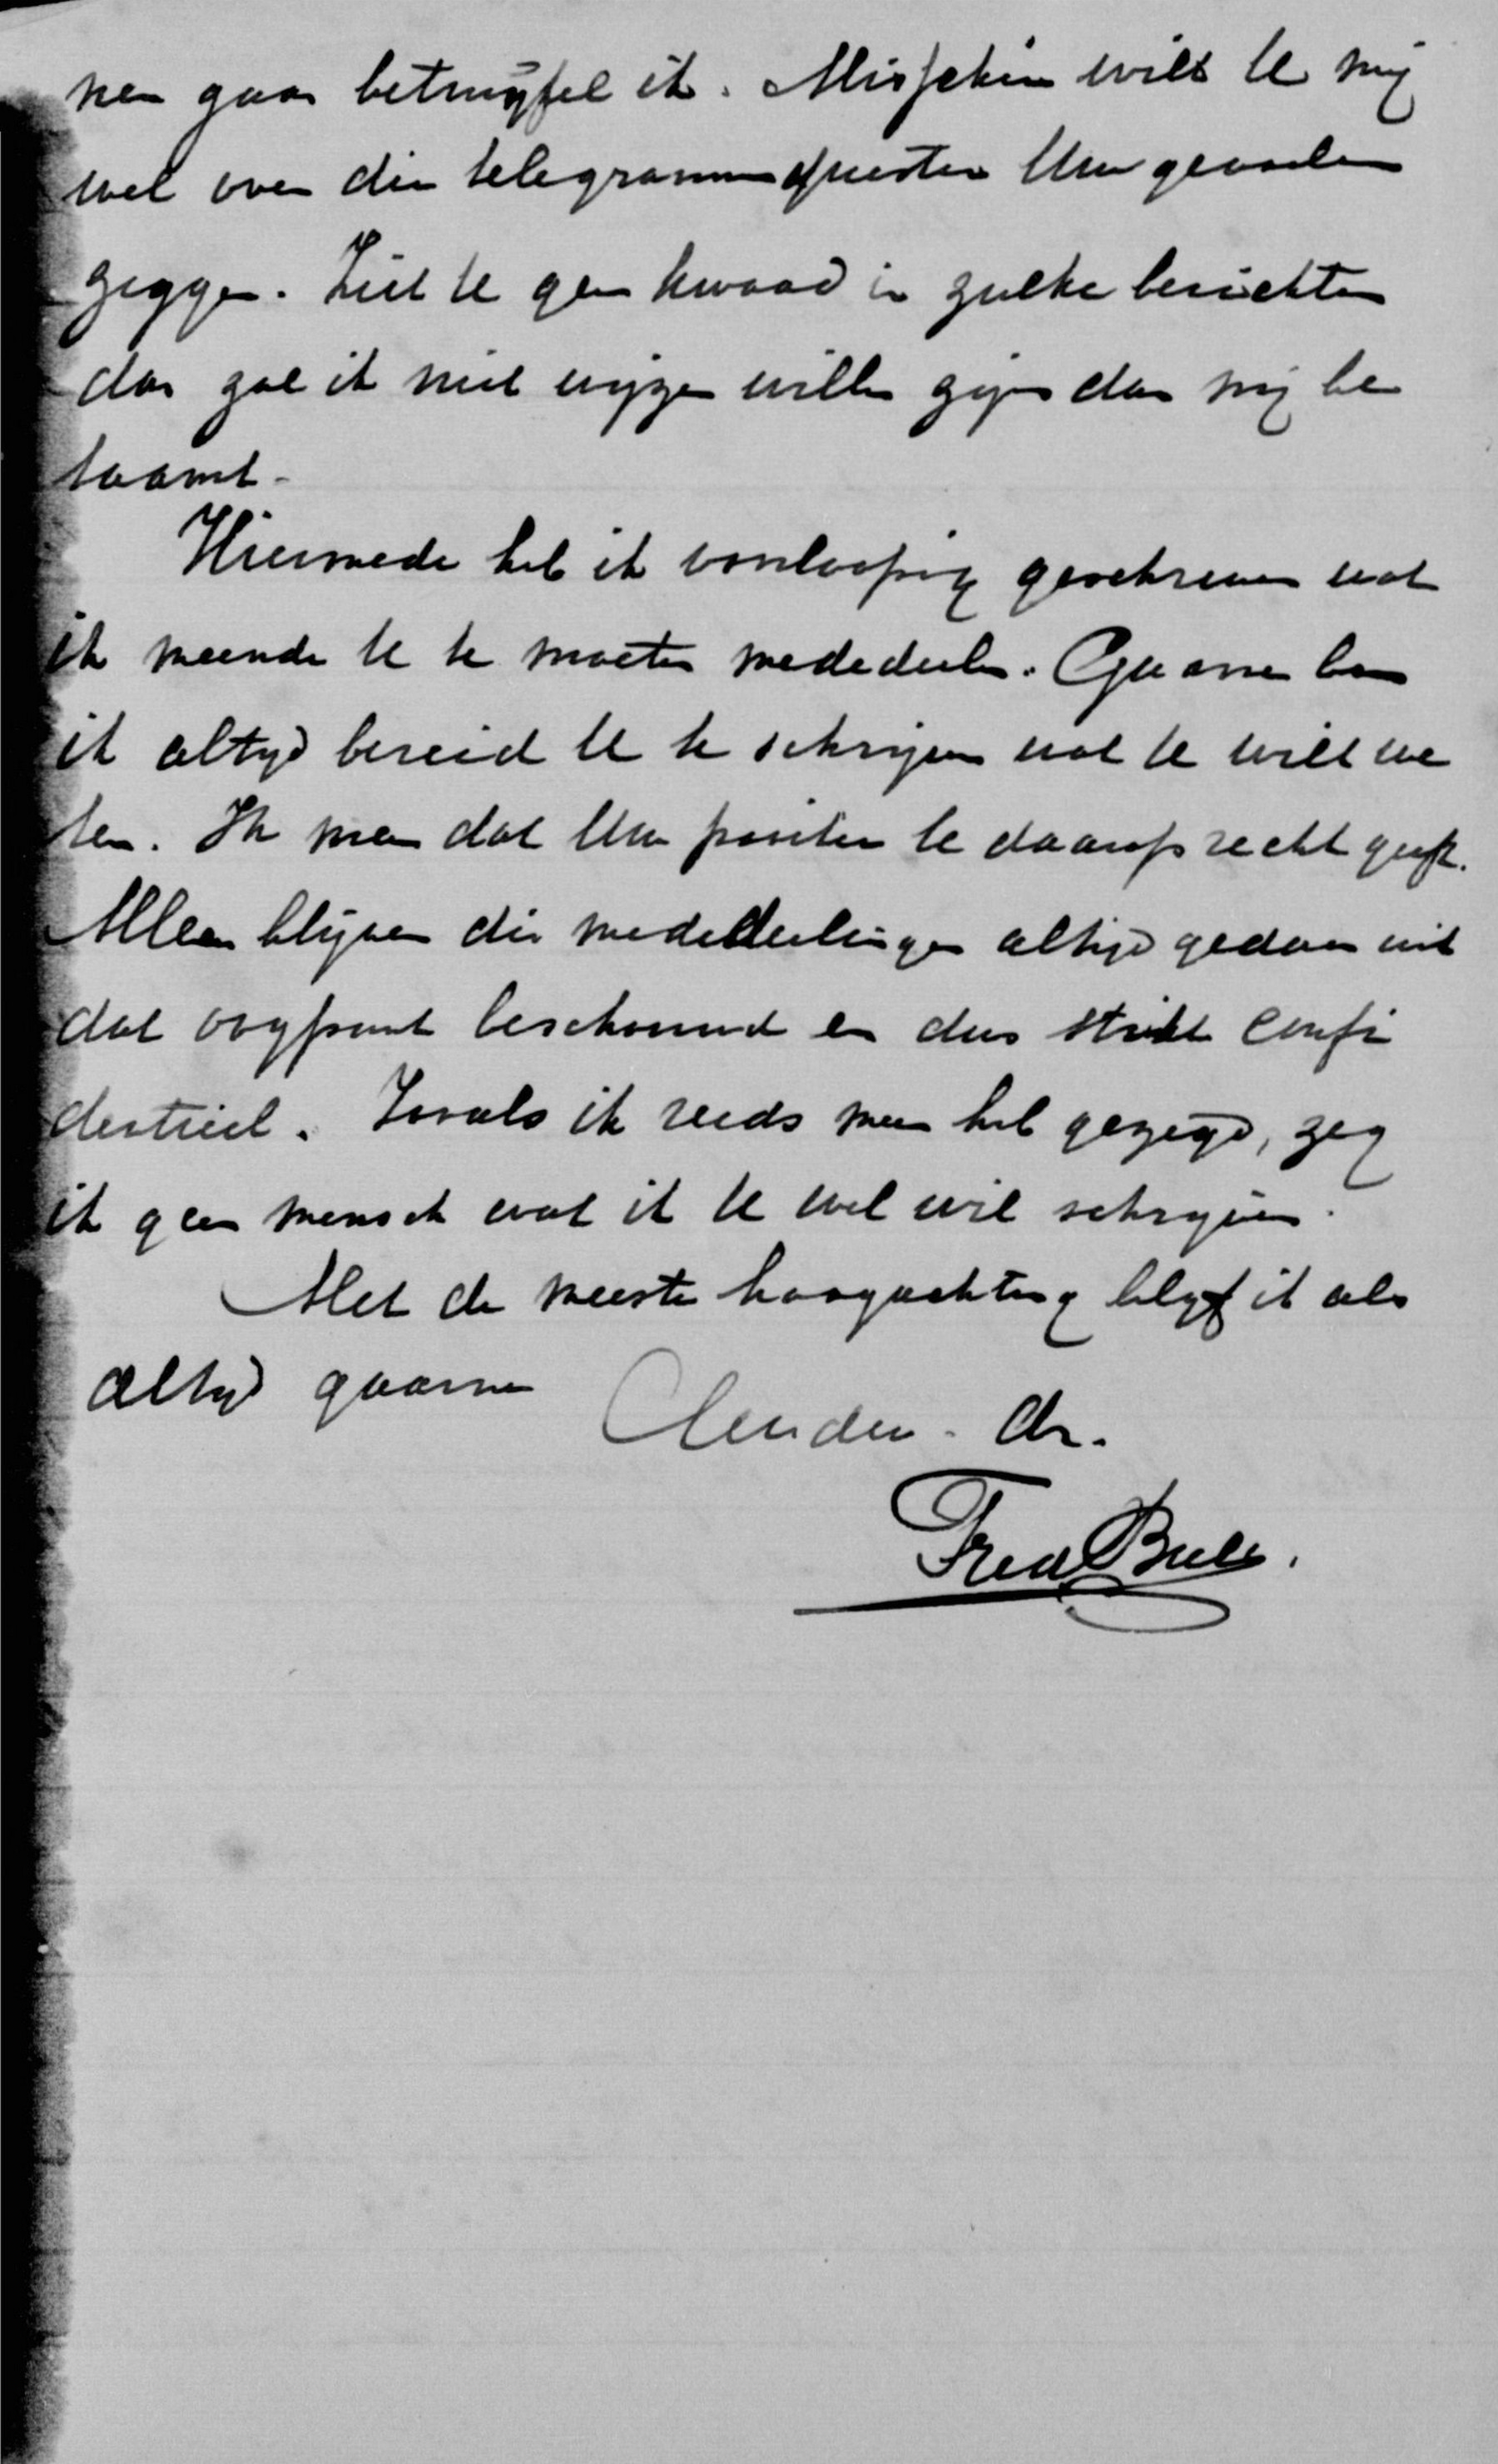 nen gaan betwijfel ik. Misschien wilt U mij
wel over die telegrammquestie Uw gevoelen
zeggen. Ziet U geen kwaad in zulke berichten
dan zal ik niet wijzer willen zijn dan mij be
taamt.
Hiermede heb ik voorloopig geschreven wat
ik meende U te moeten mededeelen. Gaarne ben
ik altijd bereid U te schrijven wat U wilt we
ten. Ik meen dat Uw positie U daarop recht geeft.
Alleen blijven die mededeelingen altijd gedaan uit
dat oogpunt beschouwd en dus strikt confi
dentieel. Zooals ik reeds meer heb gezegd, zeg
ik geen mensch wat ik U wel wil schrijven.
Met de meeste hoogachting blijf ik als
altijd gaarne
Uw dw. dr.
Fred Buls.